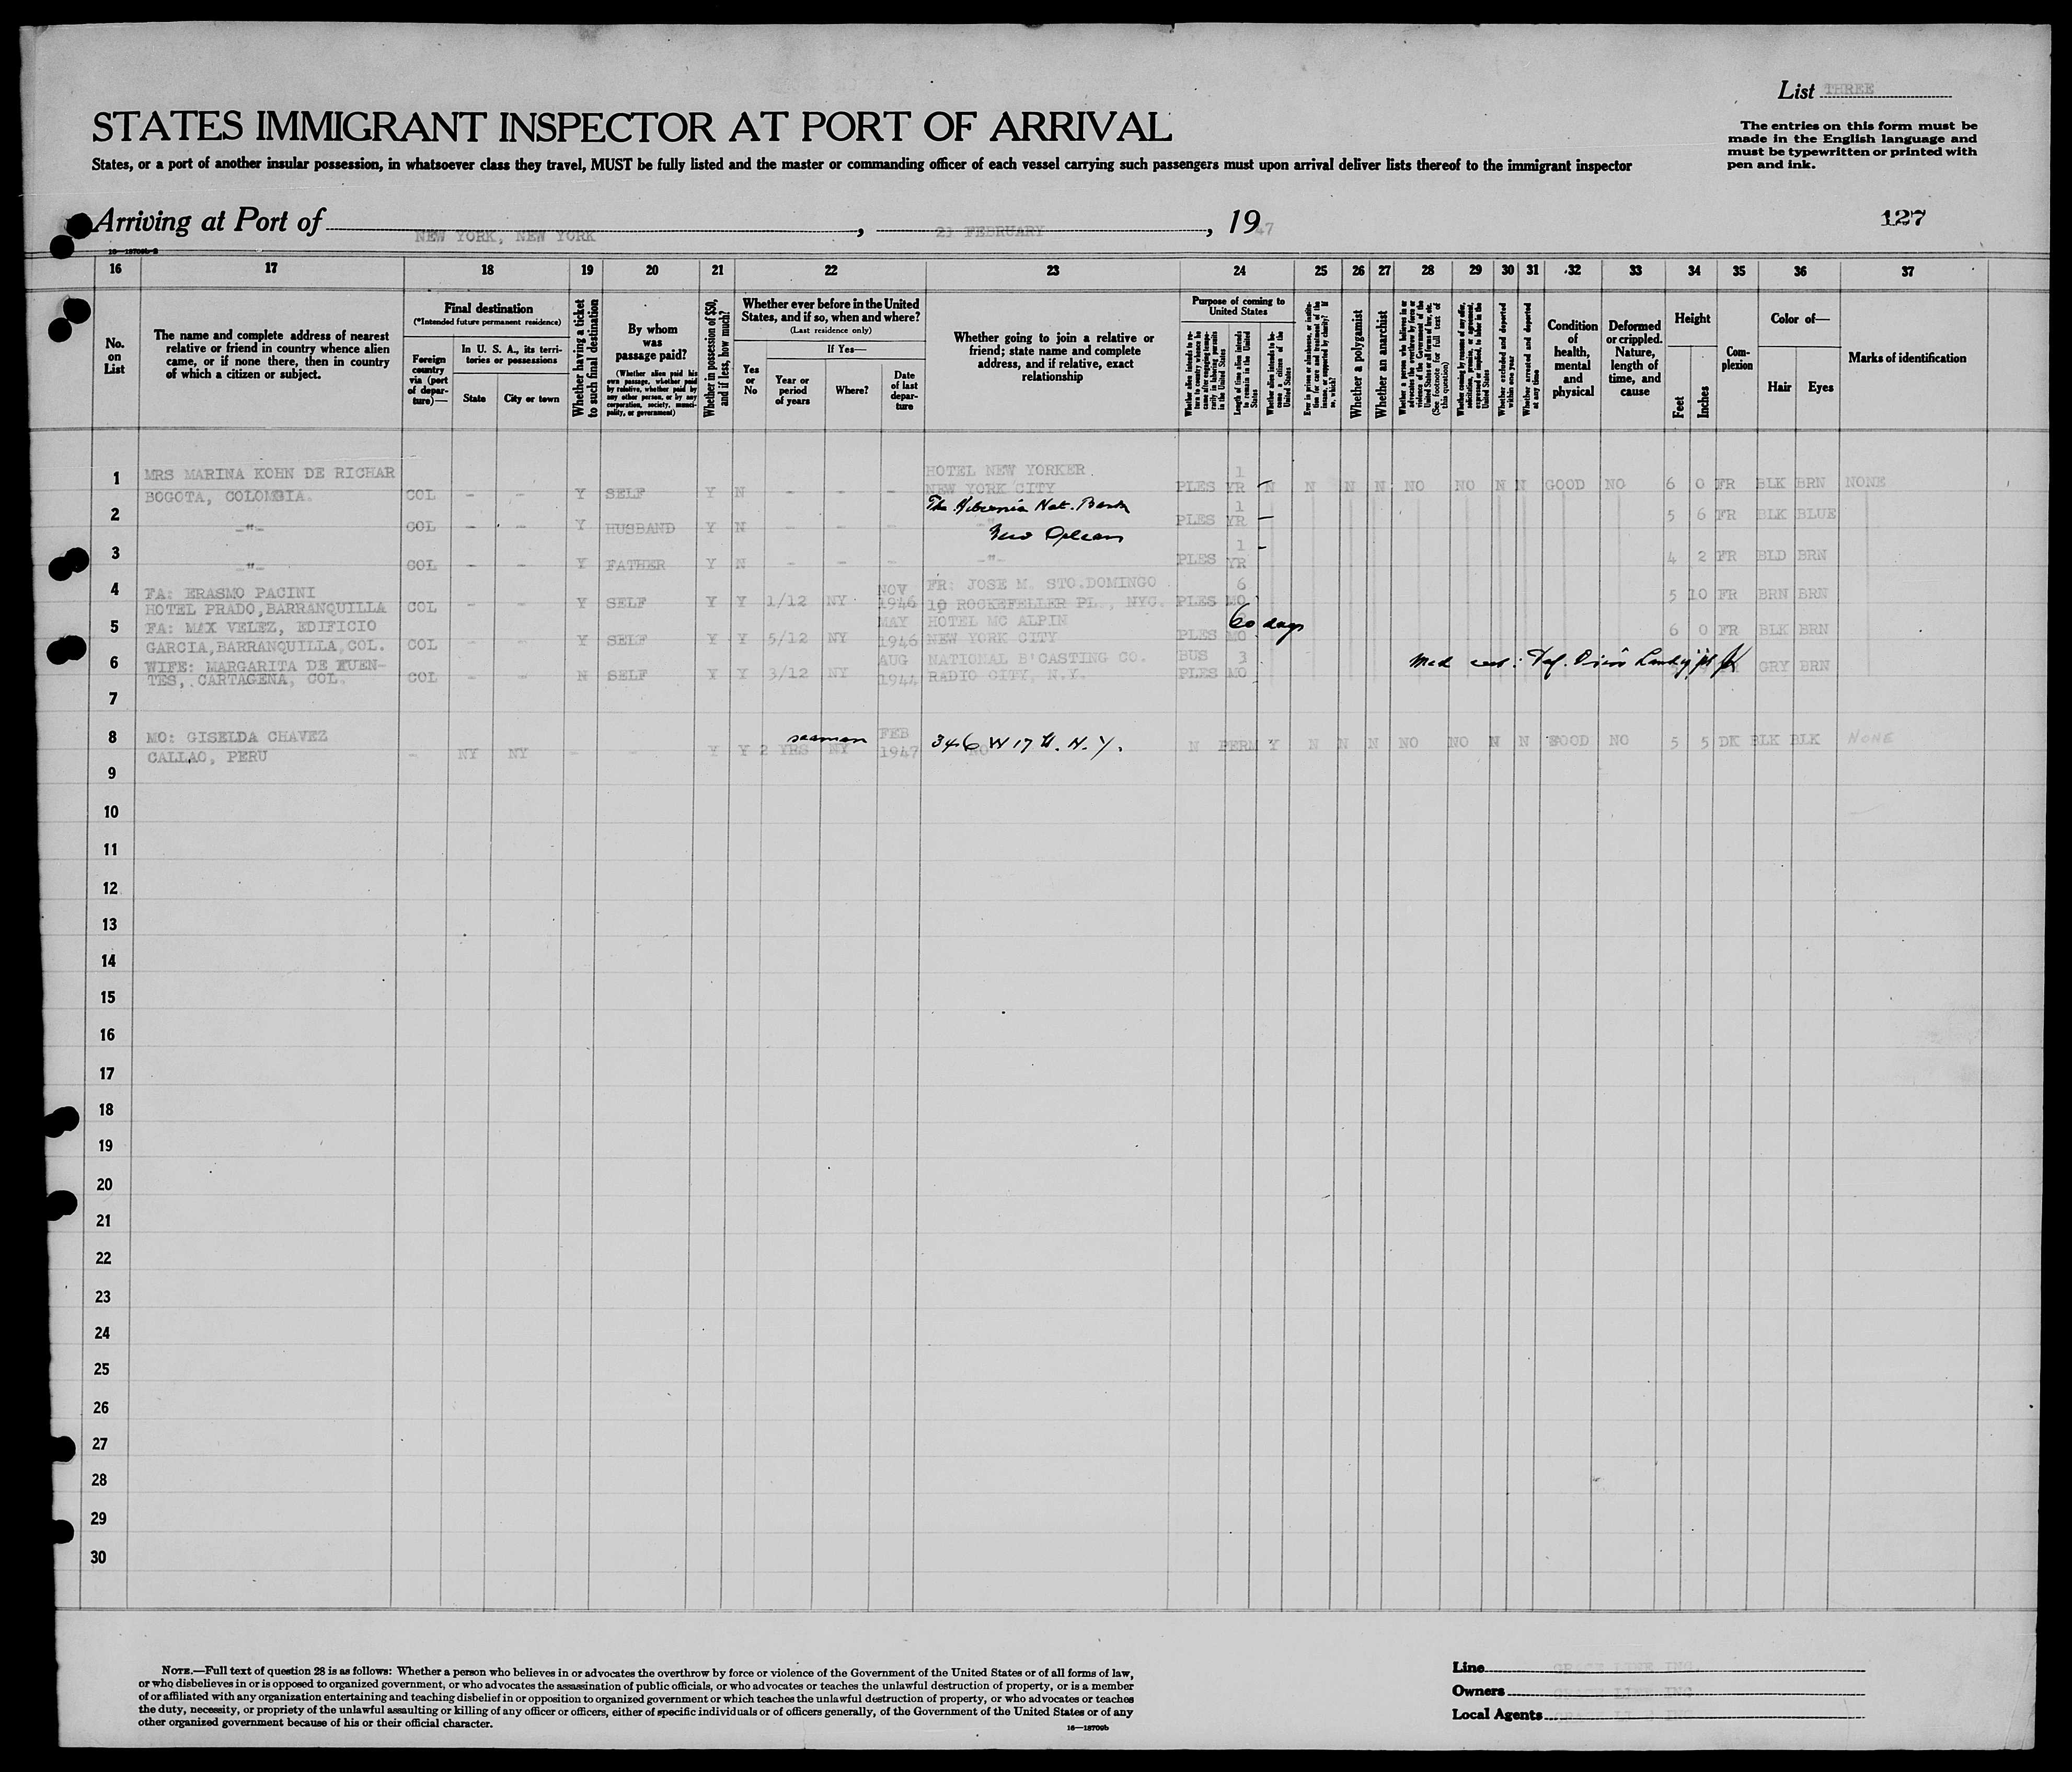 List THREE
STATES IMMIGRANT INSPECTOR AT PORT OF ARRIVAL
The entries on this form must be
made in the English language and
must be typewritten or printed with
pen and ink.
States, or a port of another insular possession, in whatsoever class they travel, MUST be fully listed and the master or commanding officer of each vessel carrying such passengers must upon arrival deliver lists thereof to the immigrant inspector
Arriving at Port of NEW YORK, NEW YORK, 23 FEBRUARY, 1947
127
16—18709b-2
16 17 18 19 20 21 22 23 24 25 26 27 28 29 30 31 32 33 34 35 36 37
No.
on
List
The name and complete address of nearest
relative or friend in country whence alien
came, or if none there, then in country
of which a citizen or subject.
Final destination
(*Intended future permanent residence)
Foreign
country
via (port
of depar-
ture)—
In U. S. A., its terri-
tories or possessions
State
City or town
Whether having a ticket
to such final destination
By whom
was
passage paid?
(Whether alien paid his
own passage, whether paid
by relative, whether paid by
any other person, or by any
corporation, society, munici-
pality, or government)
Whether in possession of $50,
and if less, how much?
Whether ever before in the United
States, and if so, when and where?
(Last residence only)
Yes
or
No
If Yes—
Year or
period
of years
Where?
Date
of last
depar-
ture
Whether going to join a relative or
friend; state name and complete
address, and if relative, exact
relationship
Purpose of coming to
United States
Whether alien intends to re-
turn to country whence he
came after engaging tempo-
rarily in laboring pursuits
in the United States
Length of time alien intends
to remain in the United
States
Whether alien intends to be-
come a citizen of the
United States
Ever in prison or almshouse, or institu-
tion for care and treatment of the
insane, or supported by charity? If
so, which?
Whether a polygamist
Whether an anarchist
Whether a person who believes in or
advocates the overthrow by force or
violence of the Government of the
United States or all forms of law, etc.
(See footnote for full text of
this question)
Whether coming by reason of any offer,
solicitation, promise, or agreement,
expressed or implied, to labor in the
United States
Whether excluded and deported
within one year
Whether arrested and deported
at any time
Condition
of
health,
mental
and
physical
Deformed
or crippled.
Nature,
length of
time, and
cause
Height
Feet
Inches
Com-
plexion
Color of—
Hair
Eyes
Marks of identification
1 MRS MARINA KOHN DE RICHAR HOTEL NEW YORKER 1
BOGOTA, COLOMBIA. COL - - Y SELF Y N - - - NEW YORK CITY PLES YR N N N N NO NO N N GOOD NO 6 0 FR BLK BRN NONE
2 The Hibernia Nat. Bank 1
-"- COL - - Y HUSBAND Y N - - - -"- PLES YR 5 6 FR BLK BLUE
New Orleans
3 1
-"- COL - - Y FATHER Y N - - - -"- PLES YR 4 2 FR BLD BRN
4 FA: ERASMO PACINI NOV FR: JOSE M. STO.DOMINGO 6
HOTEL PRADO,BARRANQUILLA COL - - Y SELF Y Y 1/12 NY 1946 10 ROCKEFELLER PL., NYC. PLES MO 5 10 FR BRN BRN
5 FA: MAX VELEZ, EDIFICIO MAY HOTEL MC ALPIN 60 days
GARCIA,BARRANQUILLA,COL. COL - - Y SELF Y Y 5/12 NY 1946 NEW YORK CITY PLES MO 6 0 FR BLK BRN
6 WIFE: MARGARITA DE FUEN- AUG NATIONAL B'CASTING CO. BUS 3 Med cert:
TES, CARTAGENA, COL. COL - - N SELF Y Y 3/12 NY 1944 RADIO CITY, N.Y. PLES MO GRY BRN
7
8 MO: GISELDA CHAVEZ seaman FEB 346 W 17 St. N.Y.
CALLAO, PERU - NY NY - - Y Y 2 YRS NY 1947 NO N PERM Y N N N NO NO N N GOOD NO 5 5 DK BLK BLK NONE
9
10
11
12
13
14
15
16
17
18
19
20
21
22
23
24
25
26
27
28
29
30
NOTE.—Full text of question 28 is as follows: Whether a person who believes in or advocates the overthrow by force or violence of the Government of the United States or of all forms of law,
or who disbelieves in or is opposed to organized government, or who advocates the assassination of public officials, or who advocates or teaches the unlawful destruction of property, or is a member
of or affiliated with any organization entertaining and teaching disbelief in or opposition to organized government or which teaches the unlawful destruction of property, or who advocates or teaches
the duty, necessity, or propriety of the unlawful assaulting or killing of any officer or officers, either of specific individuals or of officers generally, of the Government of the United States or of any
other organized government because of his or their official character.
16—18709b
Line GRACE LINE INC
Owners GRACE LINE INC
Local Agents GRACE LINE INC